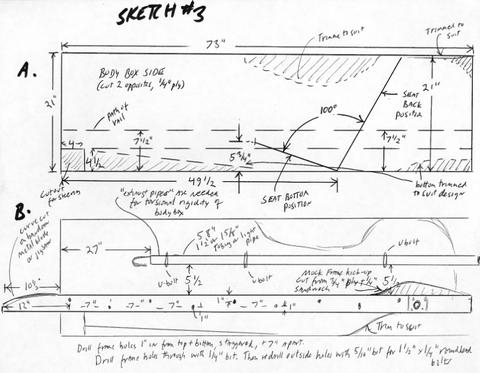 SKETCH #3
73"
Trimme to suit
Trimmed to suit
A.
BODY BOX SIDE
(cut 2 opposites, 3/4" ply)
21"
21"
SEAT BACK POSITION
100°
path of rail
4
7 1/2"
7 1/2"
4 1/2
5 3/4"
49 1/2
SEAT BOTTOM POSITION
bottom trimmed to suit design
cutout for steering
B.
"Exhaust pipes" are needed for torsional rigidity of body box
curve cut
metal blade
27"
1 1/2" or 1 5/8" tubing or light pipe
u-bolt
u-bolt
u-bolt
5 1/2
Mock Frame kick-up
cut from 3/4" ply
sandwich
5 1/2
10 1/2
12"
-7"-
-7"-
-7"-
1"
-7"-
1"
1"
Trim to suit
Drill frame holes 1" in from top + bottom, staggered, + 7" apart.
Drill frame holes through with 1/4" bit. Then redrill outside holes with 5/16" bit for 1 1/2" x 1/4" roundhead bolts